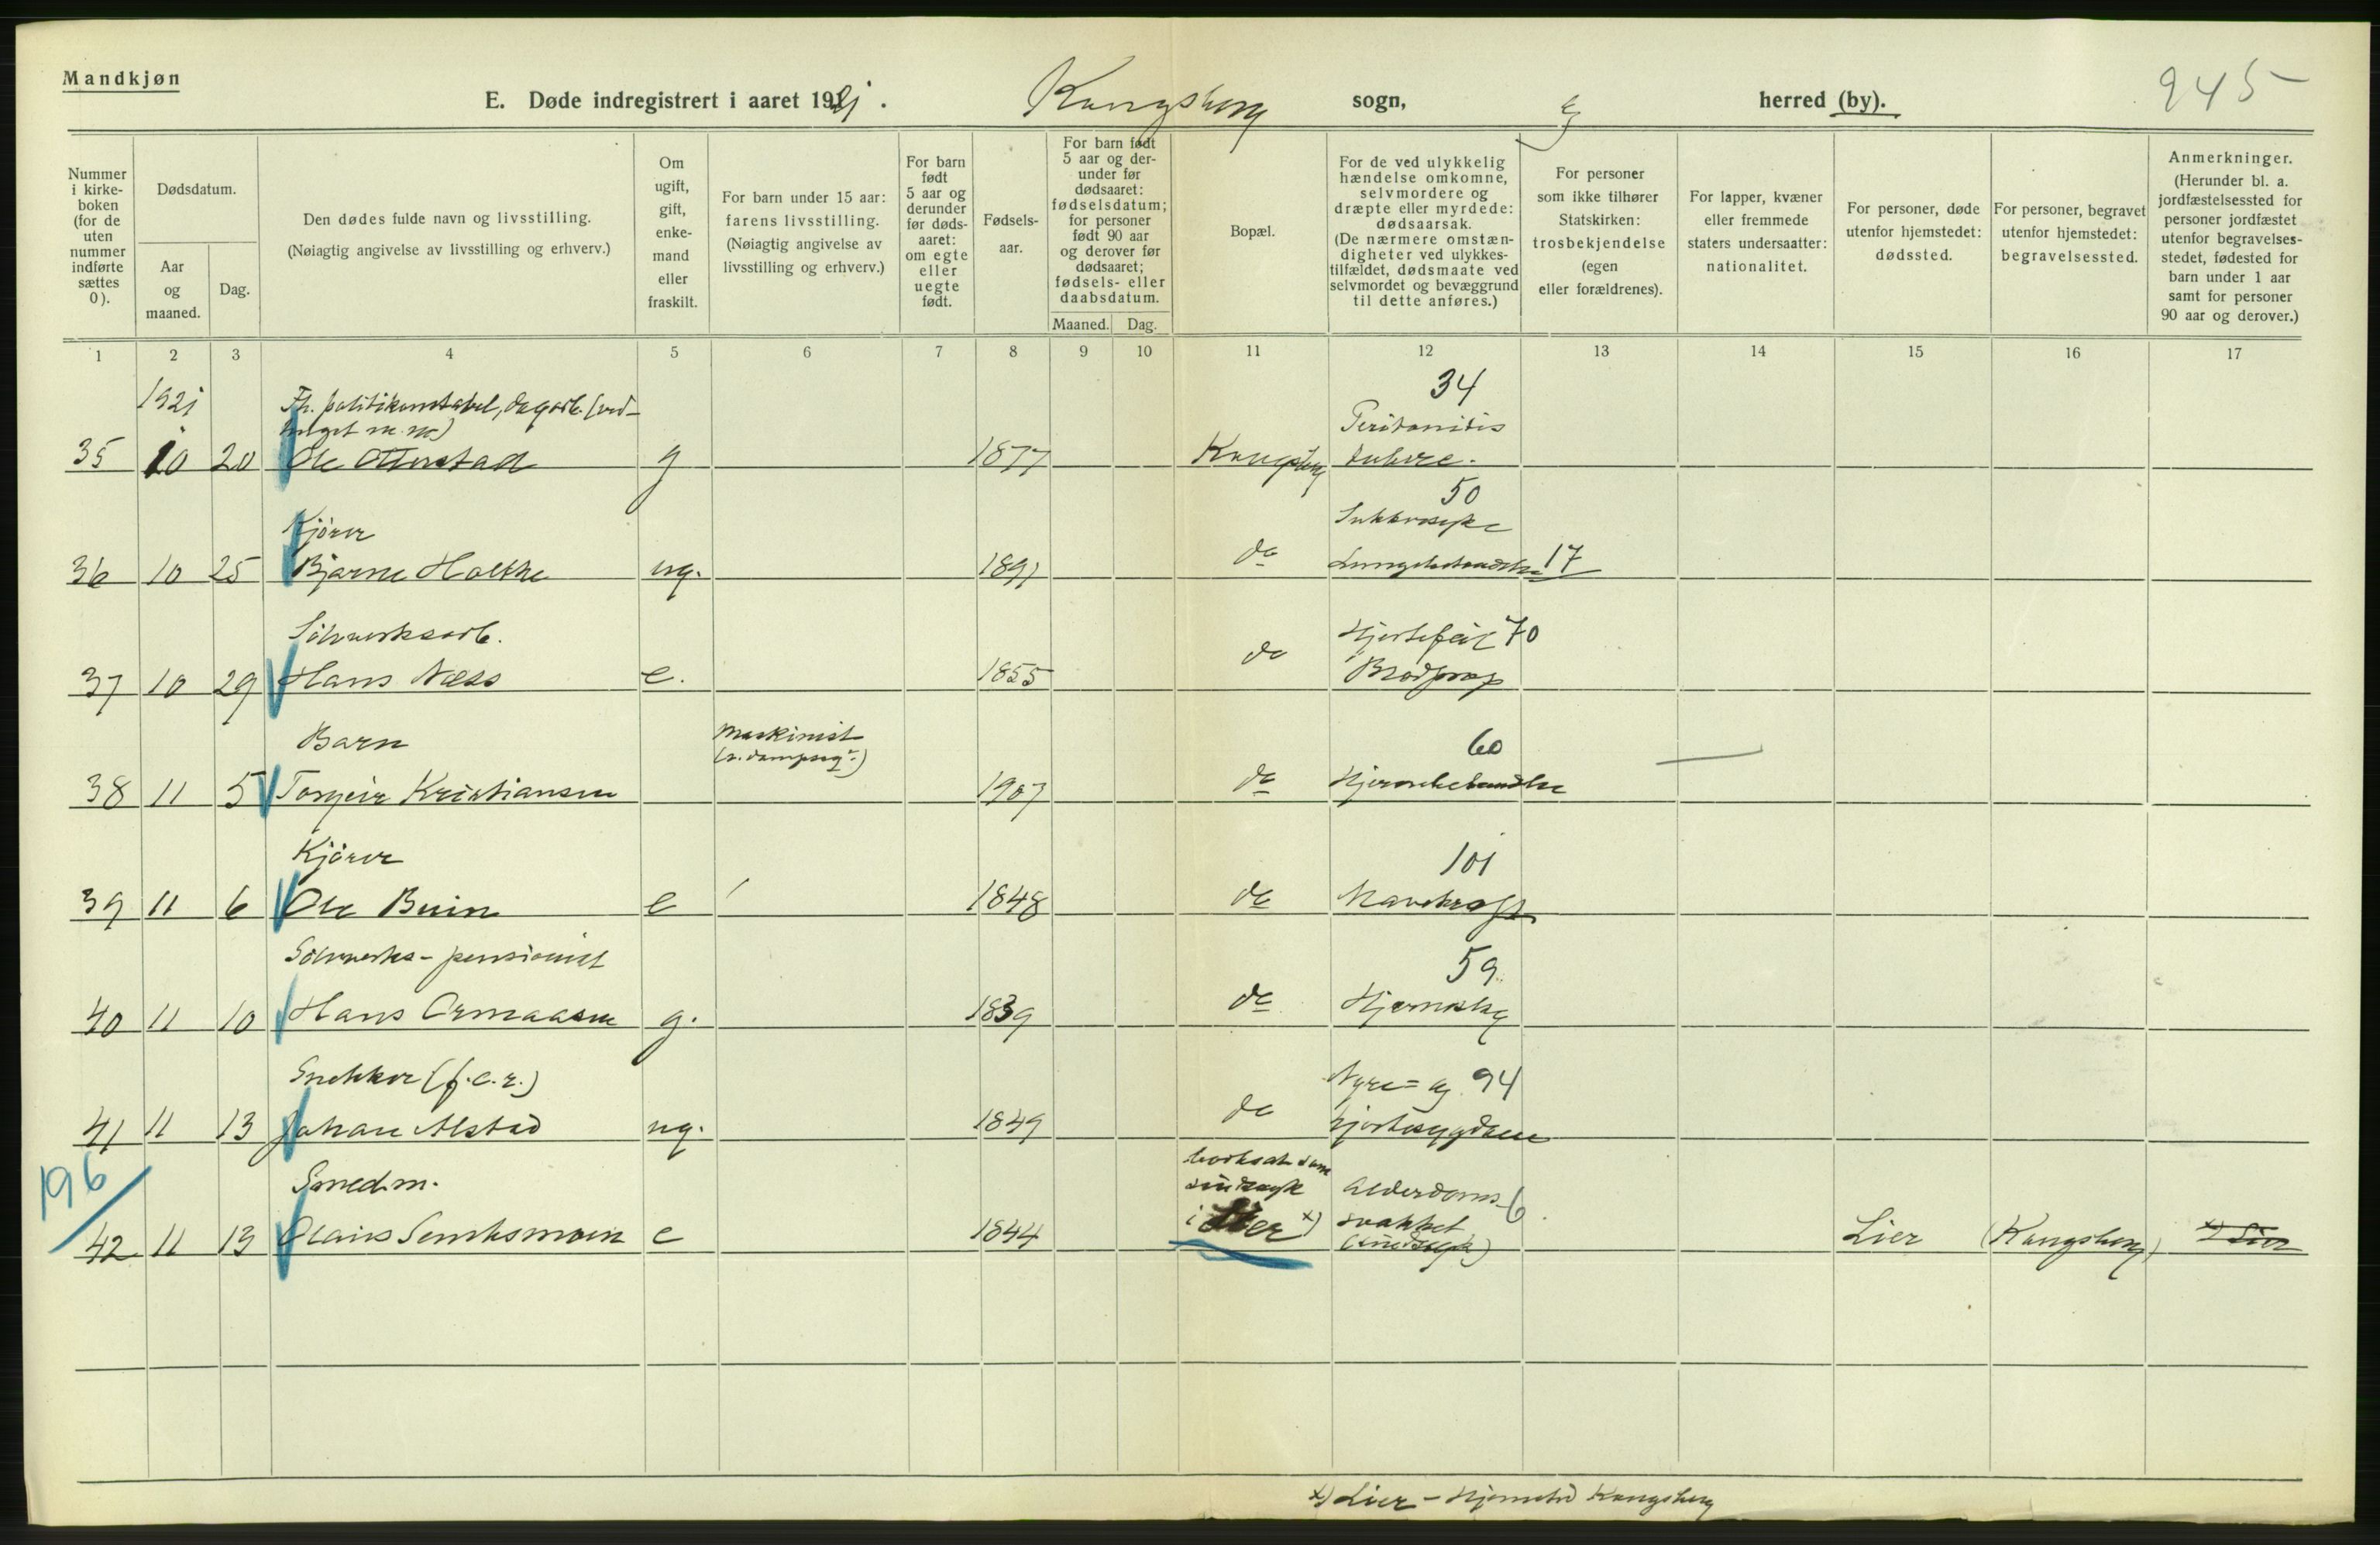 Mandkjøn
E. Døde indregistrert i aaret 1921.
Kongsberg sogn,
herred (by).
245
Nummer i kirkeboken (for de uten nummer indførte sættes 0).
Dødsdatum.
Aar og maaned.
Dag.
Den dødes fulde navn og livsstilling.
(Nøiagtig angivelse av livsstilling og erhverv.)
Om ugift, gift, enkemand eller fraskilt.
For barn under 15 aar: farens livsstilling.
(Nøiagtig angivelse av livsstilling og erhverv.)
For barn født 5 aar og derunder før dødsaaret: om egte eller uegte født.
Fødselsaar.
For barn født 5 aar og derunder før dødsaaret: fødselsdatum; for personer født 90 aar og derover før dødsaaret; fødsels- eller daabsdatum.
Maaned. Dag.
Bopæl.
For de ved ulykkelig hændelse omkomne, selvmordere og dræpte eller myrdede: dødsaarsak.
(De nærmere omstændigheter ved ulykkestilfældet, dødsmaate ved selvmordet og bevæggrund til dette anføres.)
For personer som ikke tilhører Statskirken: trosbekjendelse (egen eller forældrenes).
For lapper, kvæner eller fremmede staters undersaatter: nationalitet.
For personer, døde utenfor hjemstedet: dødssted.
For personer, begravet utenfor hjemstedet: begravelsessted.
Anmerkninger.
(Herunder bl. a. jordfæstelsessted for personer jordfæstet utenfor begravelsesstedet, fødested for barn under 1 aar samt for personer 90 aar og derover.)
1 2 3 4 5 6 7 8 9 10 11 12 13 14 15 16 17
1921
Fh. politikonstabel, dagarb.
34
Peritonitis
35 10 20 Ole Otterstad g 1877 Kongsberg tuberc.
50
Kjører Sukkersyke
36 10 25 Bjarne Holthe ug. 1891 do Lungebetændelse 17
Sølvverksarb. Hjertefeil 70
37 10 29 Hans Næss e. 1855 do Blodprop
Barn Maskinist 60
38 11 5 Torgeir Kristiansen 1907 do Hjernebetændelse
Kjører 101
39 11 6 Ole Buin e 1848 do Mavekræft
Sølvverks-pensionist 59
40 11 10 Hans Ormaasen g. 1839 do Hjerneslag
Snekker (f.e.r.) Nyre= og 94
41 11 13 Johan Alstad ug. 1849 do hjertesygdom
196
Smedm. bortsat som sindssyk Alderdoms- 6
42 11 13 Olaus e 1844 i Lier x) svakhet (sindssyk) Lier (Kongsberg) x) Lier
x) Lier - Hjemsted Kongsberg